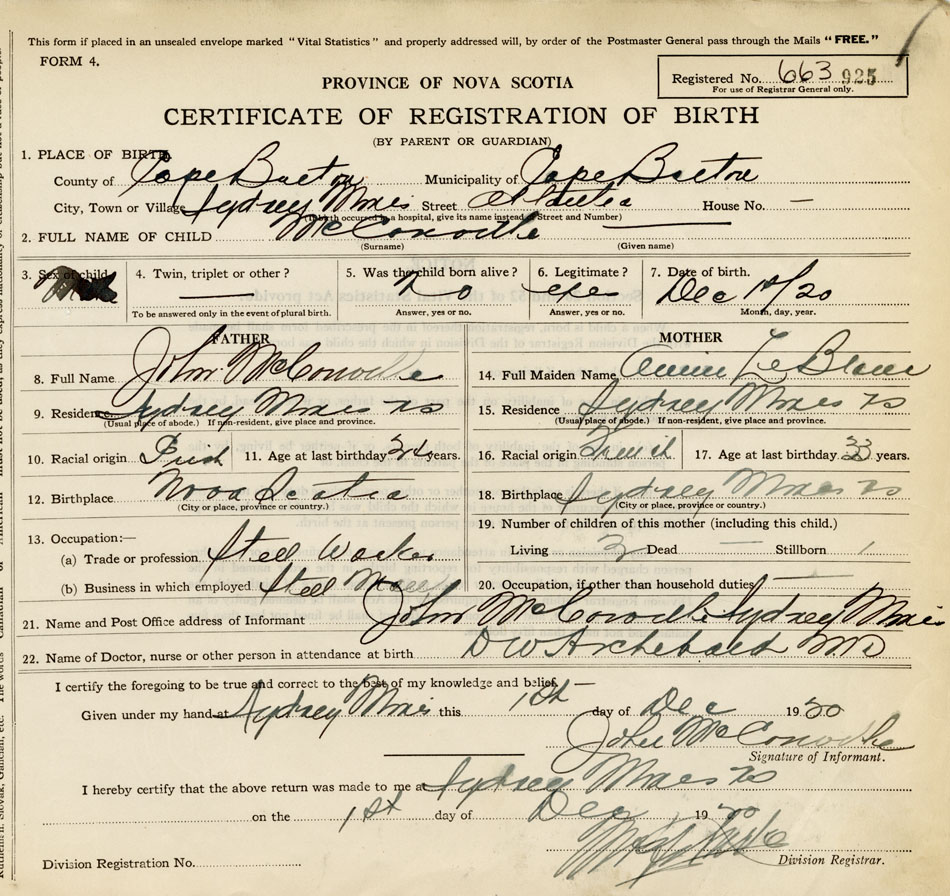 This form if placed in an unsealed envelope marked "Vital Statistics" and properly addressed will, by order of the Postmaster General pass through the Mails "FREE."
FORM 4.
Registered No. 663 925
For use of Registrar General only.
PROVINCE OF NOVA SCOTIA
CERTIFICATE OF REGISTRATION OF BIRTH
(BY PARENT OR GUARDIAN)
1. PLACE OF BIRTH
County of Cape Breton Municipality of Cape Breton
City, Town or Village Sydney Mines Street House No. —
(If birth occurred in a hospital, give its name instead of Street and Number)
2. FULL NAME OF CHILD McConville —
(Surname) (Given name)
3. Sex of child 4. Twin, triplet or other? — 5. Was the child born alive? no 6. Legitimate? yes 7. Date of birth. Dec 1st/20
To be answered only in the event of plural birth. Answer, yes or no. Answer, yes or no. Month, day, year.
FATHER MOTHER
8. Full Name John McConville 14. Full Maiden Name Annie LeBlanc
9. Residence Sydney Mines NS 15. Residence Sydney Mines NS
(Usual place of abode.) If non-resident, give place and province. (Usual place of abode.) If non-resident, give place and province.
10. Racial origin Irish 11. Age at last birthday 34 years. 16. Racial origin French 17. Age at last birthday 33 years.
12. Birthplace Nova Scotia 18. Birthplace Sydney Mines NS
(City or place, province or country.) (City or place, province or country.)
13. Occupation:— 19. Number of children of this mother (including this child.)
(a) Trade or profession Steel Worker Living 3 Dead — Stillborn 1
(b) Business in which employed Steel 20. Occupation, if other than household duties —
21. Name and Post Office address of Informant John McConville Sydney Mines
22. Name of Doctor, nurse or other person in attendance at birth DW Archibald MD
I certify the foregoing to be true and correct to the best of my knowledge and belief.
Given under my hand at Sydney Mines this 1st day of Dec 1920
John McConville
Signature of Informant.
I hereby certify that the above return was made to me at Sydney Mines NS
on the 1st day of Dec 1920
Division Registration No. Division Registrar.